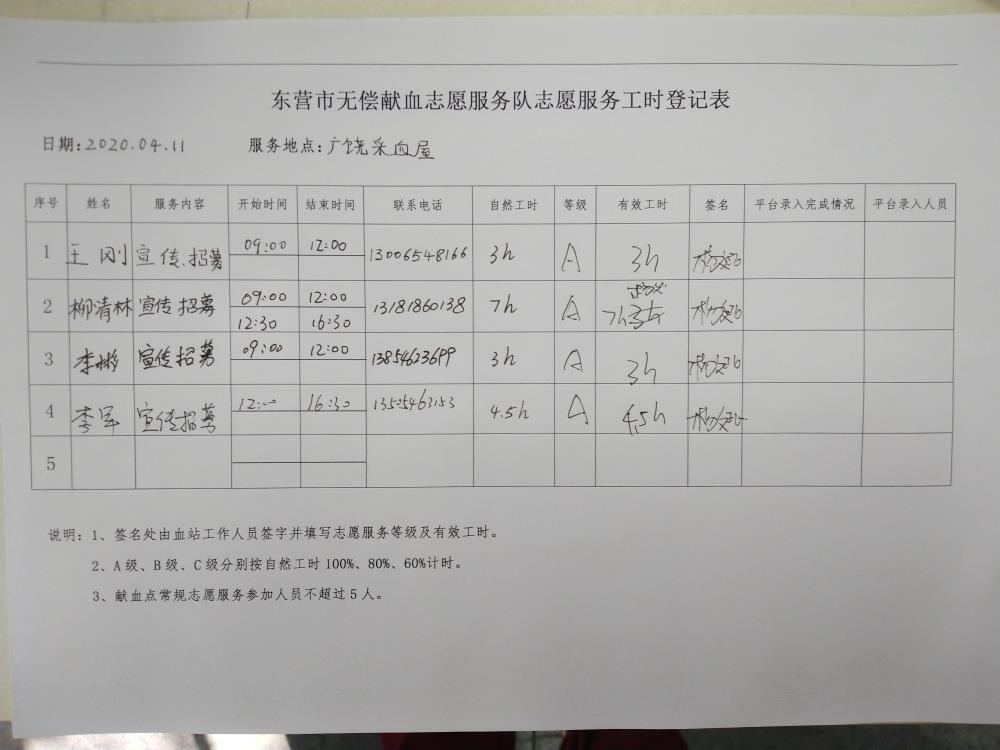 东营市无偿献血志愿服务队志愿服务工时登记表
日期:2020.04.11 服务地点:广饶采血屋
序号 姓名 服务内容 开始时间 结束时间 联系电话 自然工时 等级 有效工时 签名 平台录入完成情况 平台录入人员
1 王刚 宣传.招募 09:00 12:00 13006548166 3h A 3h
2 柳清林 宣传招募 09:00 12:00 13181860138 7h A 7h
12:30 16:30
3 李彬 宣传招募 09:00 12:00 13854623699 3h A 3h
4 李军 宣传招募 12:00 16:30 13525463153 4.5h A 4.5h
5
说明:1、签名处由血站工作人员签字并填写志愿服务等级及有效工时。
2、A级、B级、C级分别按自然工时100%、80%、60%计时。
3、献血点常规志愿服务参加人员不超过5人。